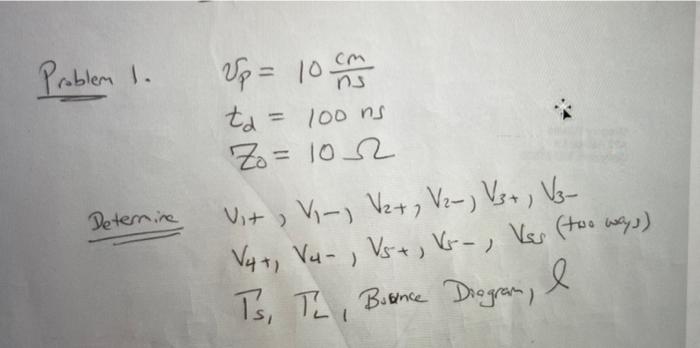 Problem 1. Vp = 10 cm/ns
td = 100 ns
Z0 = 10 Ω
Determine V1+, V1-, V2+, V2-, V3+, V3-
V4+, V4-, V5+, V5-, Vss (two ways)
Γs, ΓL, Bounce Diagram, l